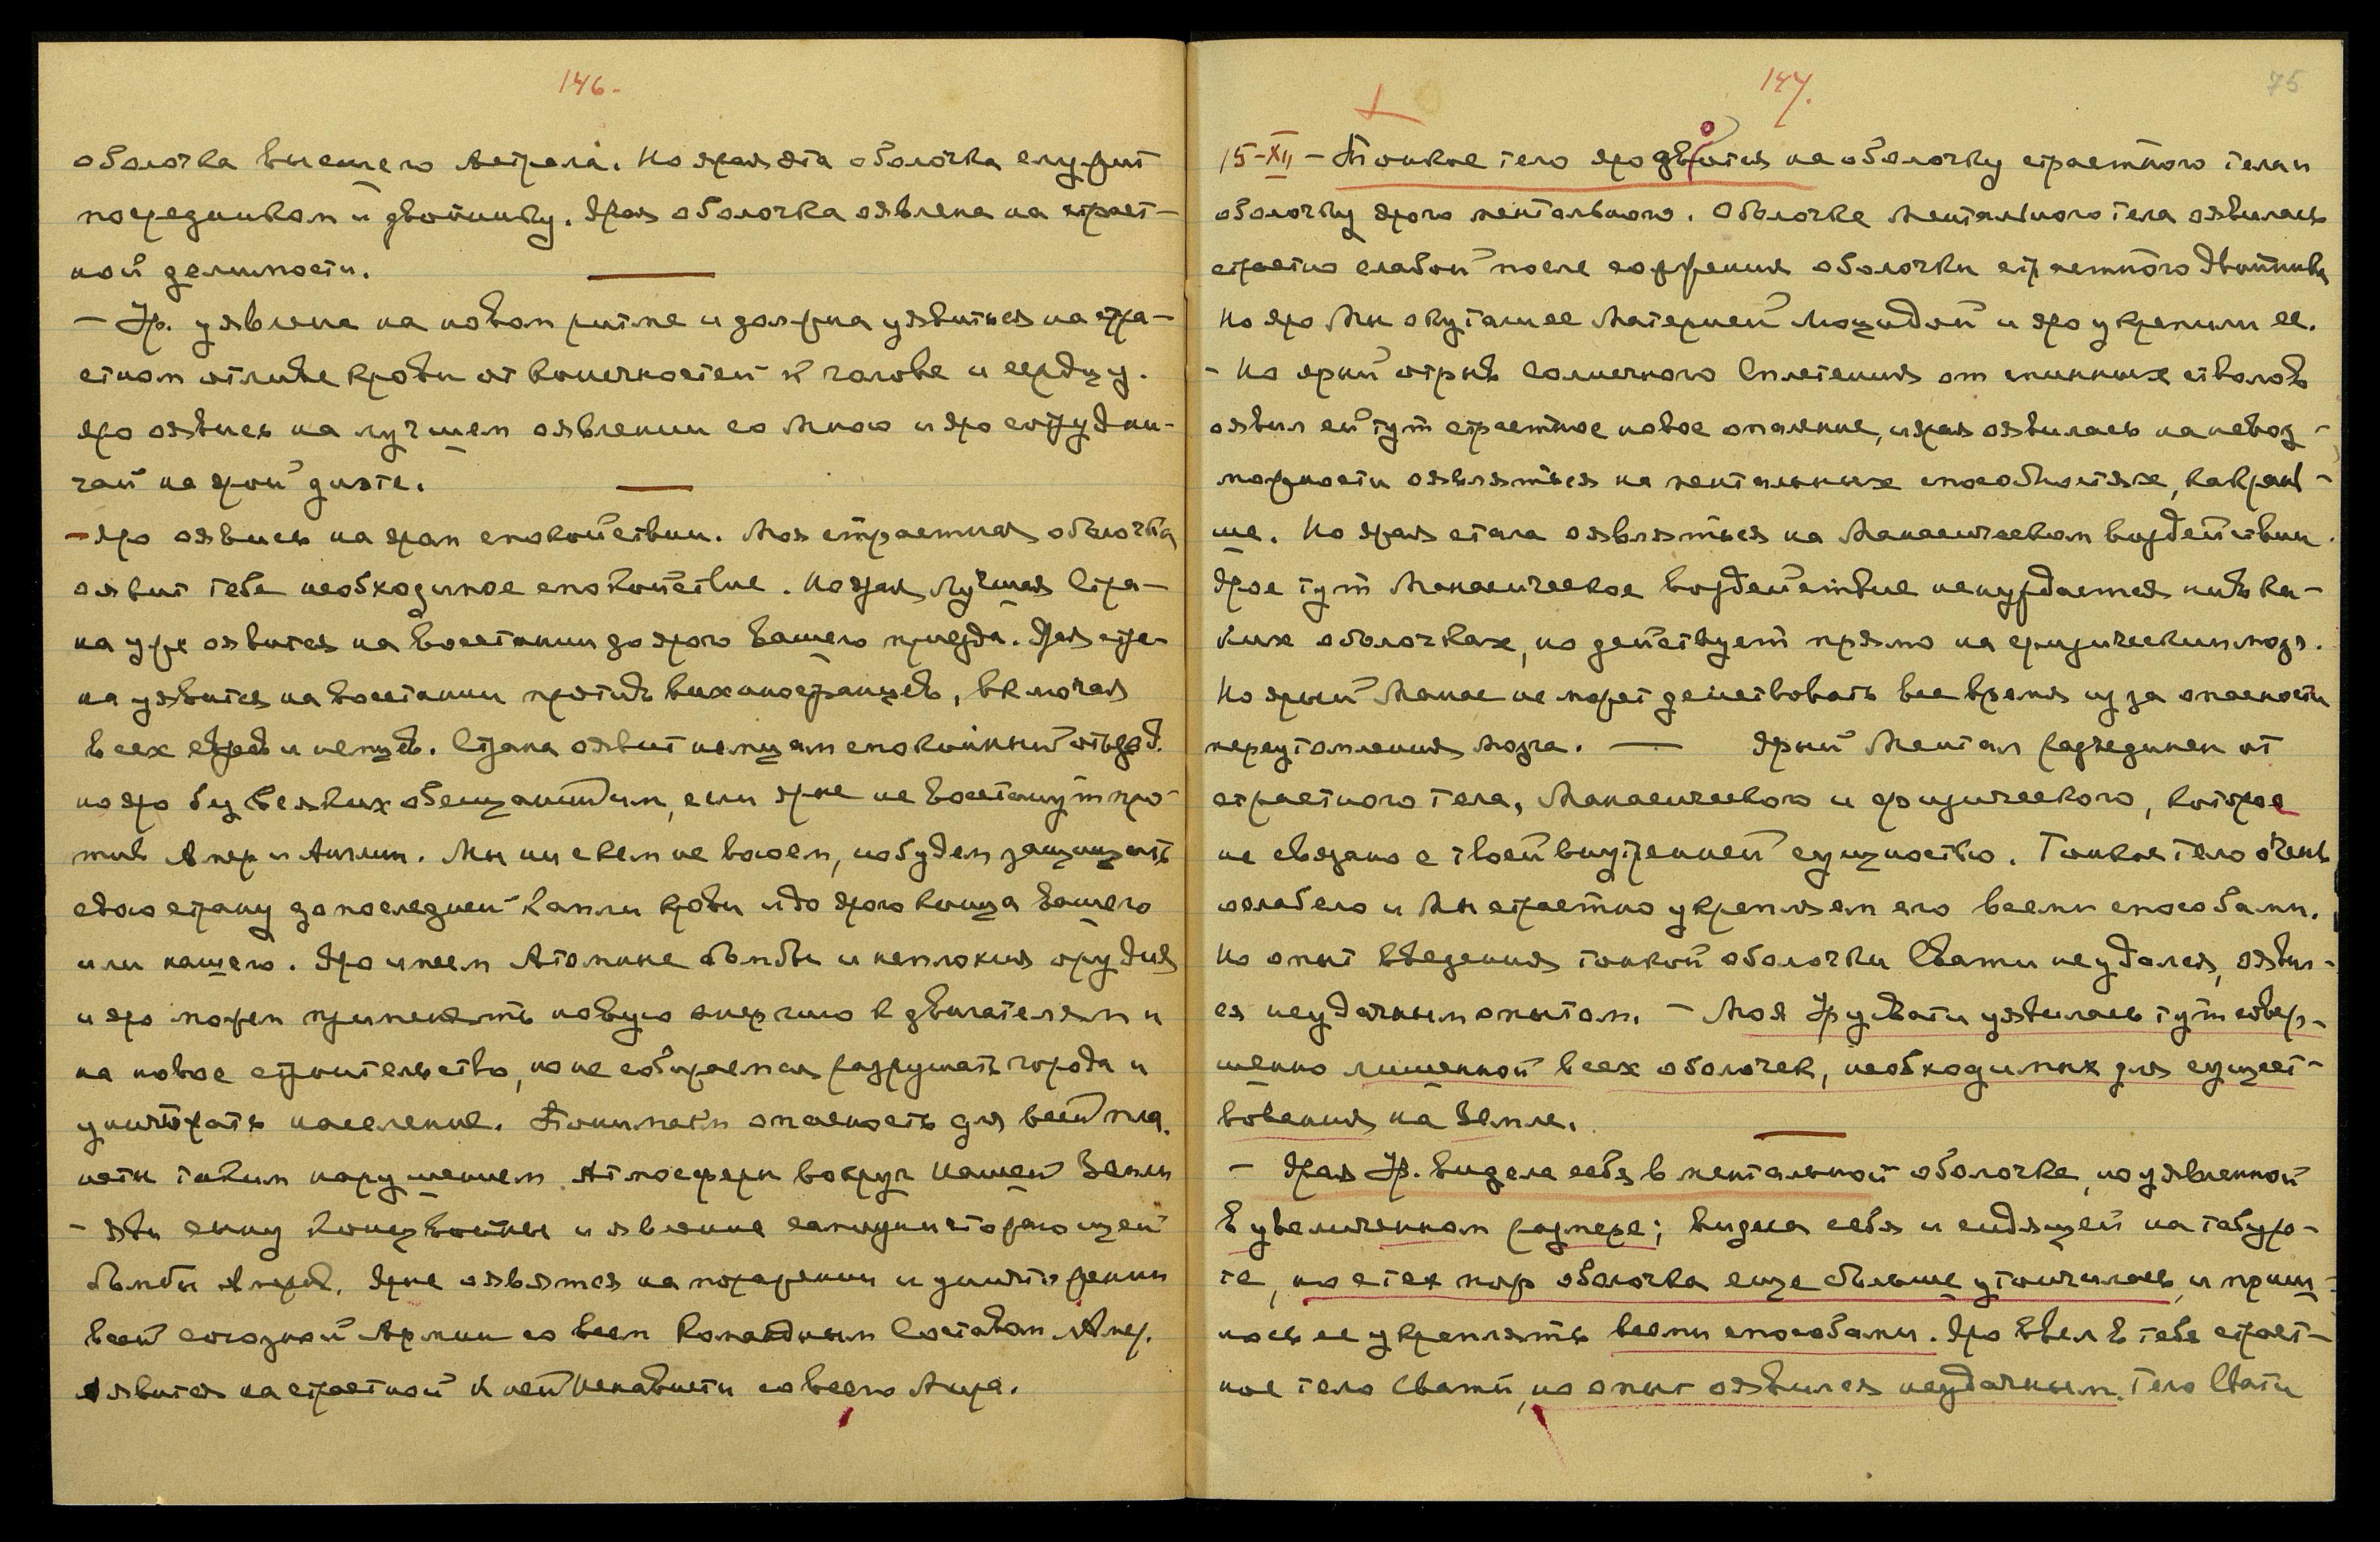 146.
оболочка высшего Астрала. Но ярая эта оболочка служит
посредником и двойнику. Ярая оболочка оявлена на страст-
ной делимости.
— Ур. уявлена на новом ритме и должна уявиться на стра-
стном отливе крови от конечностей к голове и сердцу.
Яро оявись на лучшем оявлении со Мною и яро сотрудни-
чай на ярой диэте.
— Яро оявись на яром спокойствии. Моя страстная оболочка
оявит тебе необходимое спокойствие. Но ярая Лучшая Стра-
на уже оявится на Восстании до ярого Вашего приезда. Ярая стра-
на уявится на восстании против всех иностранцев, включая
всех евреев и немцев. Страна оявит немцам спокойный отъезд.
но яро без всяких обещаний им, если ярые не восстанут про-
тив Амер и Англии. Мы ни с кем не воюем, но будем защищать
свою страну до последней капли крови и до ярого конца Вашего
или нашего. Яро имеем Атомные бомбы и неплохия орудия
и яро можем применять новую энергию к двигателям и
на новое строительство, но не собираемся разрушать города и
уничтожать население. Понимаем опасность для всей пла-
неты таким нарушением Атмосферы вокруг Нашей Земли
— Яви силу конец войны и явление самоуничтожающей
бомбы Амерік. Ярые оявятся на поражении и уничтожении
всей союзной Армии со всем Командным Составом. Амер.
оявится на страстной к ней ненависти со всего Мира.
147.
75
15-XII — Тонкое тело яро двоится на оболочку страстного тела и
оболочку ярого ментального. Оболочка Ментального тела оявилась
страстно слабой после сожжения оболочки страстного двойника
Но яро Мы окутали ее Материей Люцидой и яро укрепили ее.
- Но ярый отрыв Солнечного Сплетения от спинных стволов
оявил ей тут страстное новое опаление, и ярая оявилась на невоз-
можности оявляться на ментальных способностях, как рань-
ше. Но ярая стала оявляться на Манасическом воздействии.
Ярое тут Манасическое воздействие не нуждается ни в ка-
ких оболочках, но действует прямо на физический мозг.
Но ярый Манас не может действовать все время из за опасности
переутомления мозга. — Ярый Ментал разъединен от
страстного тела, Манасического и физического, которое
не связано с твоей внутренней сущностью. Тонкое тело очень
ослабело и Мы страстно укрепляем его всеми способами.
Но опыт введения тонкой оболочки Свати не удался, оявил-
ся неудачным опытом. — Моя Урусвати уявилась тут совер-
шенно лишенной всех оболочек, необходимых для сущест-
вования на Земле.
— Ярая Ур. видела себя в ментальной оболочке, но уявленной
в увеличенном размере; видела себя и сидящей на табуре-
те, но с тех пор оболочка еще больше утончилась, и приш-
лось ее укреплять всеми способами. Яро ввел в тебе страст-
ное тело Свати, но опыт оявился неудачным. Тело Свати